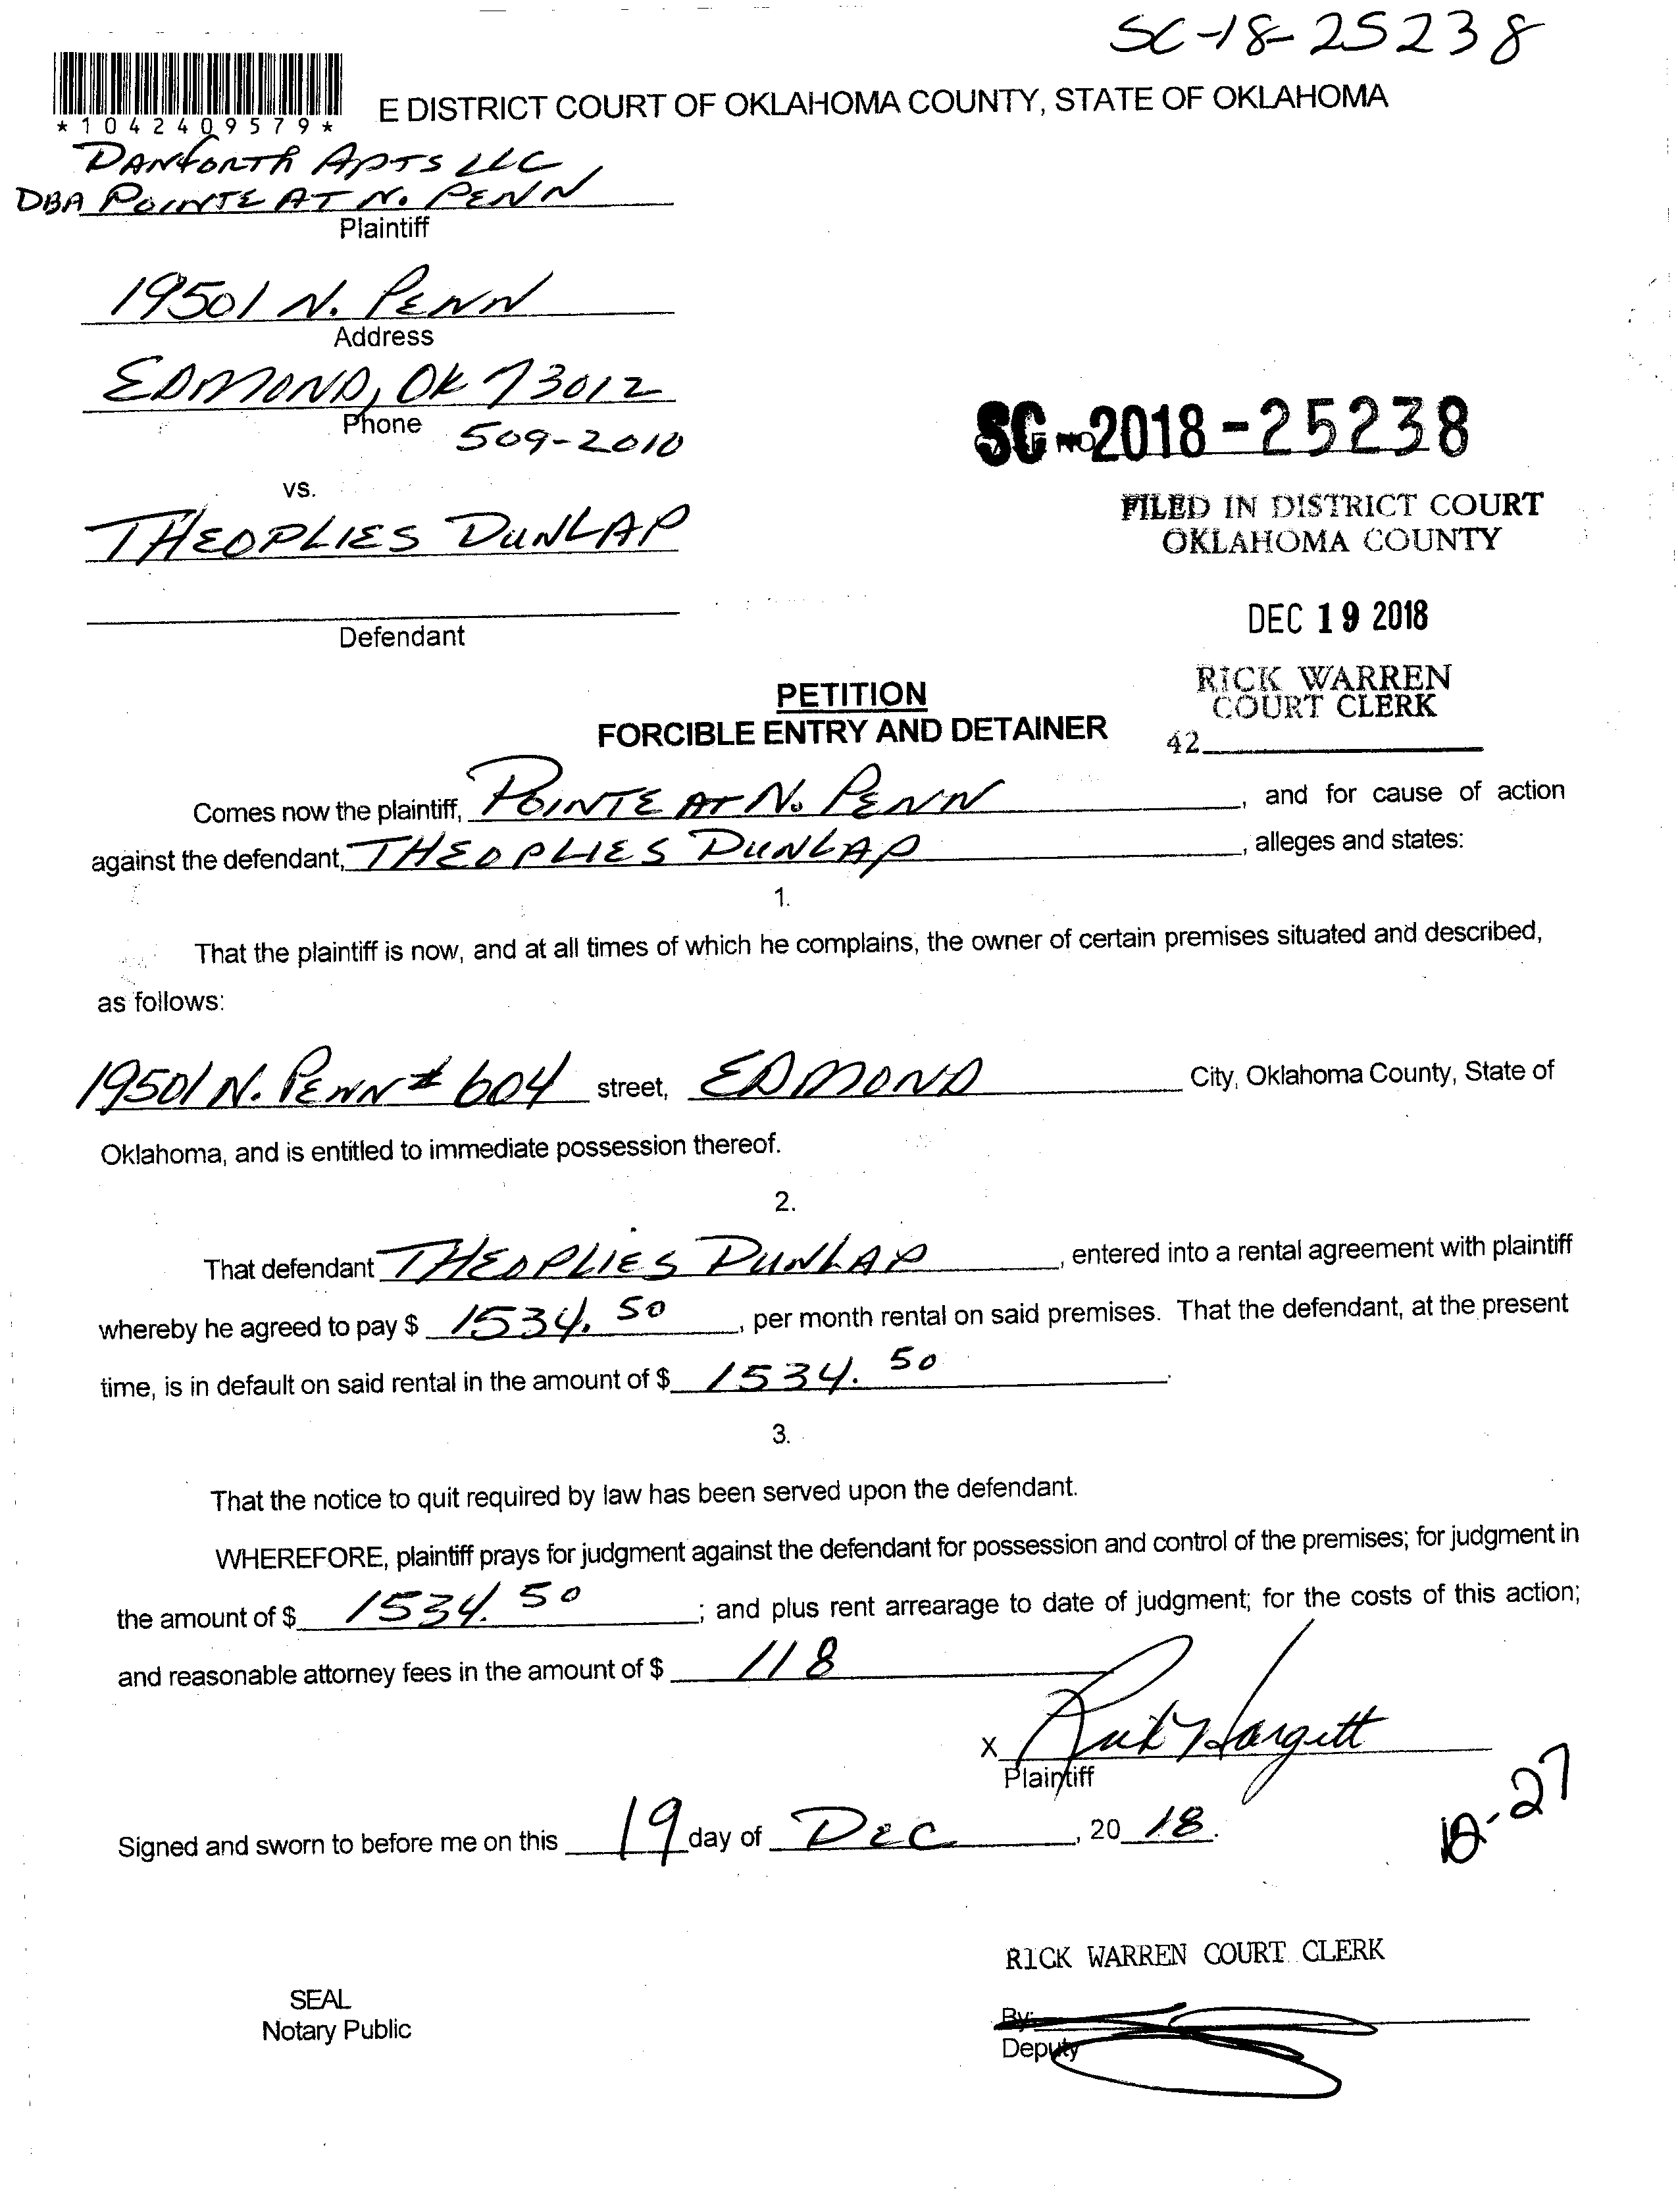 SC-18-25238
*1042409579*
E DISTRICT COURT OF OKLAHOMA COUNTY, STATE OF OKLAHOMA
DANFORTH APTS LLC
DBA POINTE AT N. PENN
Plaintiff
19501 N. PENN
Address
EDMOND, OK 73012
Phone 509-2010
SC NO 2018-25238
vs.
THEOPLIES DUNLAP
FILED IN DISTRICT COURT
OKLAHOMA COUNTY
DEC 19 2018
Defendant
RICK WARREN
COURT CLERK
42
PETITION
FORCIBLE ENTRY AND DETAINER
Comes now the plaintiff, POINTE AT N. PENN, and for cause of action
against the defendant, THEOPLIES DUNLAP, alleges and states:
1.
That the plaintiff is now, and at all times of which he complains, the owner of certain premises situated and described,
as follows:
19501 N. PENN # 604 street, EDMOND City, Oklahoma County, State of
Oklahoma, and is entitled to immediate possession thereof.
2.
That defendant THEOPLIES DUNLAP, entered into a rental agreement with plaintiff
whereby he agreed to pay $ 1534.50, per month rental on said premises. That the defendant, at the present
time, is in default on said rental in the amount of $ 1534.50.
3.
That the notice to quit required by law has been served upon the defendant.
WHEREFORE, plaintiff prays for judgment against the defendant for possession and control of the premises; for judgment in
the amount of $ 1534.50; and plus rent arrearage to date of judgment; for the costs of this action;
and reasonable attorney fees in the amount of $ 118
X Rick Hargett
Plaintiff
Signed and sworn to before me on this 19 day of DEC, 20 18.
12-27
RICK WARREN COURT CLERK
SEAL
Notary Public
By:
Deputy